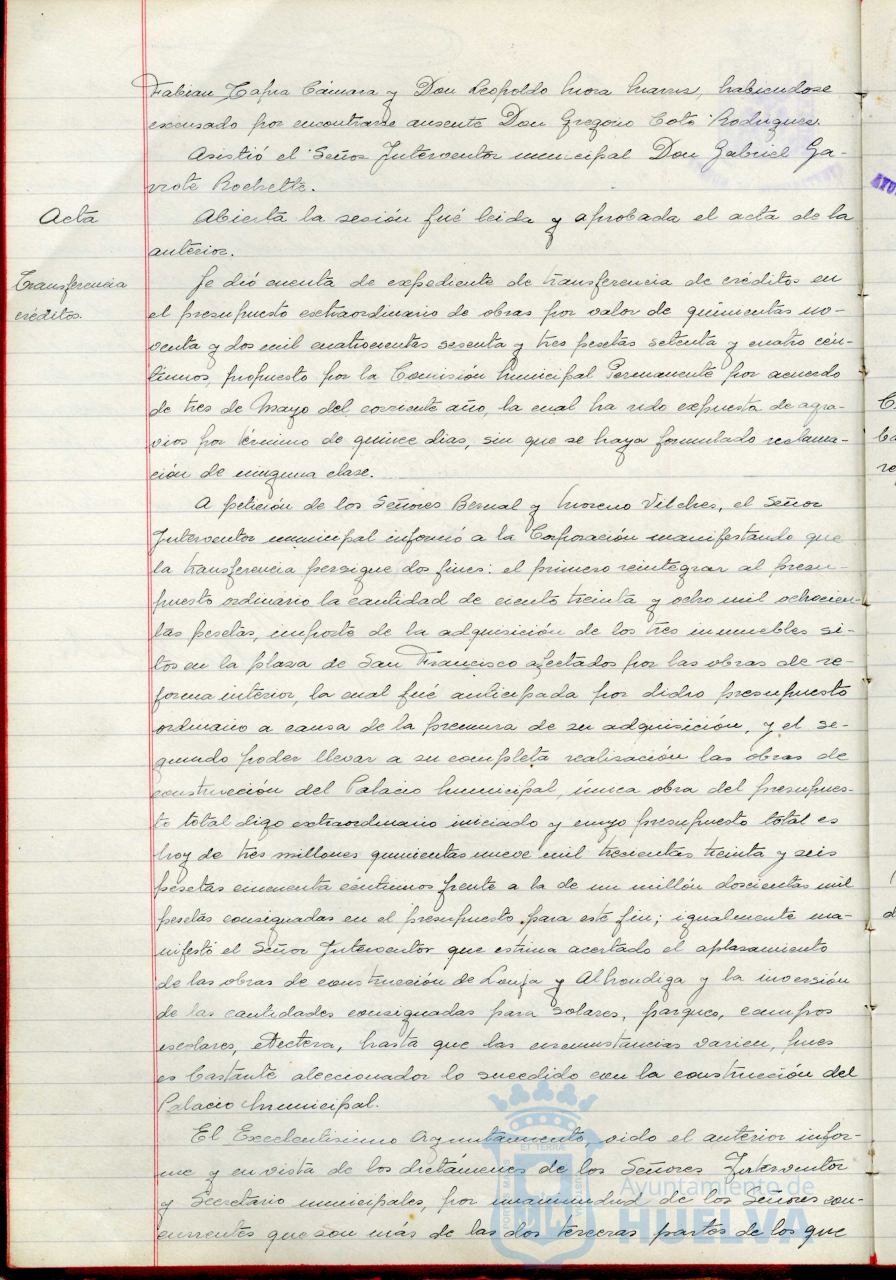 Fabian Tapia Cámara y Don Leopoldo Mora Marns, habiendose
excusado por encontrarse ausente Don Gregorio Coto Rodriguez.
Asistió el Señor Interventor municipal Don Gabriel Ga-
viote Rochette.
Acta
Abierta la sesión fué leida y aprobada el acta de la
anterior.
Transferencia
créditos.
Se dió cuenta de expediente de transferencia de créditos en
el presupuesto extraordinario de obras por valor de quinientas no-
venta y dos mil cuatrocientas sesenta y tres pesetas setenta y cuatro cén-
timos, propuesto por la Comisión Municipal Permanente por acuerdo
de tres de Mayo del corriente año, la cual ha sido expuesta de agra-
vios por término de quince dias, sin que se haya formulado reclama-
ción de ninguna clase.
A petición de los Señores Bernal y Moreno Vilches, el Señor
Interventor municipal informó a la Corporación manifestando que
la transferencia persigue dos fines: el primero reintegrar al presu-
puesto ordinario la cantidad de ciento treinta y ocho mil ochocien-
tas pesetas, importe de la adquisición de los tres inmuebles si-
tos en la plaza de San Francisco afectados por las obras de re-
forma interior, la cual fué anticipada por dicho presupuesto
ordinario a causa de la premura de su adquisición, y el se-
gundo poder llevar a su completa realización las obras de
construcción del Palacio Municipal, única obra del presupues-
to total digo extraordinario iniciado y cuyo presupuesto total es
hoy de tres millones quinientas nueve mil trecientas treinta y seis
pesetas cincuenta céntimos frente a la de un millón doscientas mil
pesetas consignadas en el presupuesto para este fin; igualmente ma-
nifestó el Señor Interventor que estima acertado el aplazamiento
de las obras de construcción de Lonja y Alhondiga y la inversión
de las cantidades consignadas para solares, parques, campos
escolares, etectera, hasta que las circunstancias varien, pues
es bastante aleccionador lo sucedido con la construcción del
Palacio Municipal.
El Excelentisimo Ayuntamiento, oido el anterior infor-
me y en vista de los dictámenes de los Señores Interventor
y Secretario municipales, por unanimidad de los Señores con-
currentes que son más de las dos terceras partes de los que
Ayuntamiento de
HUELVA